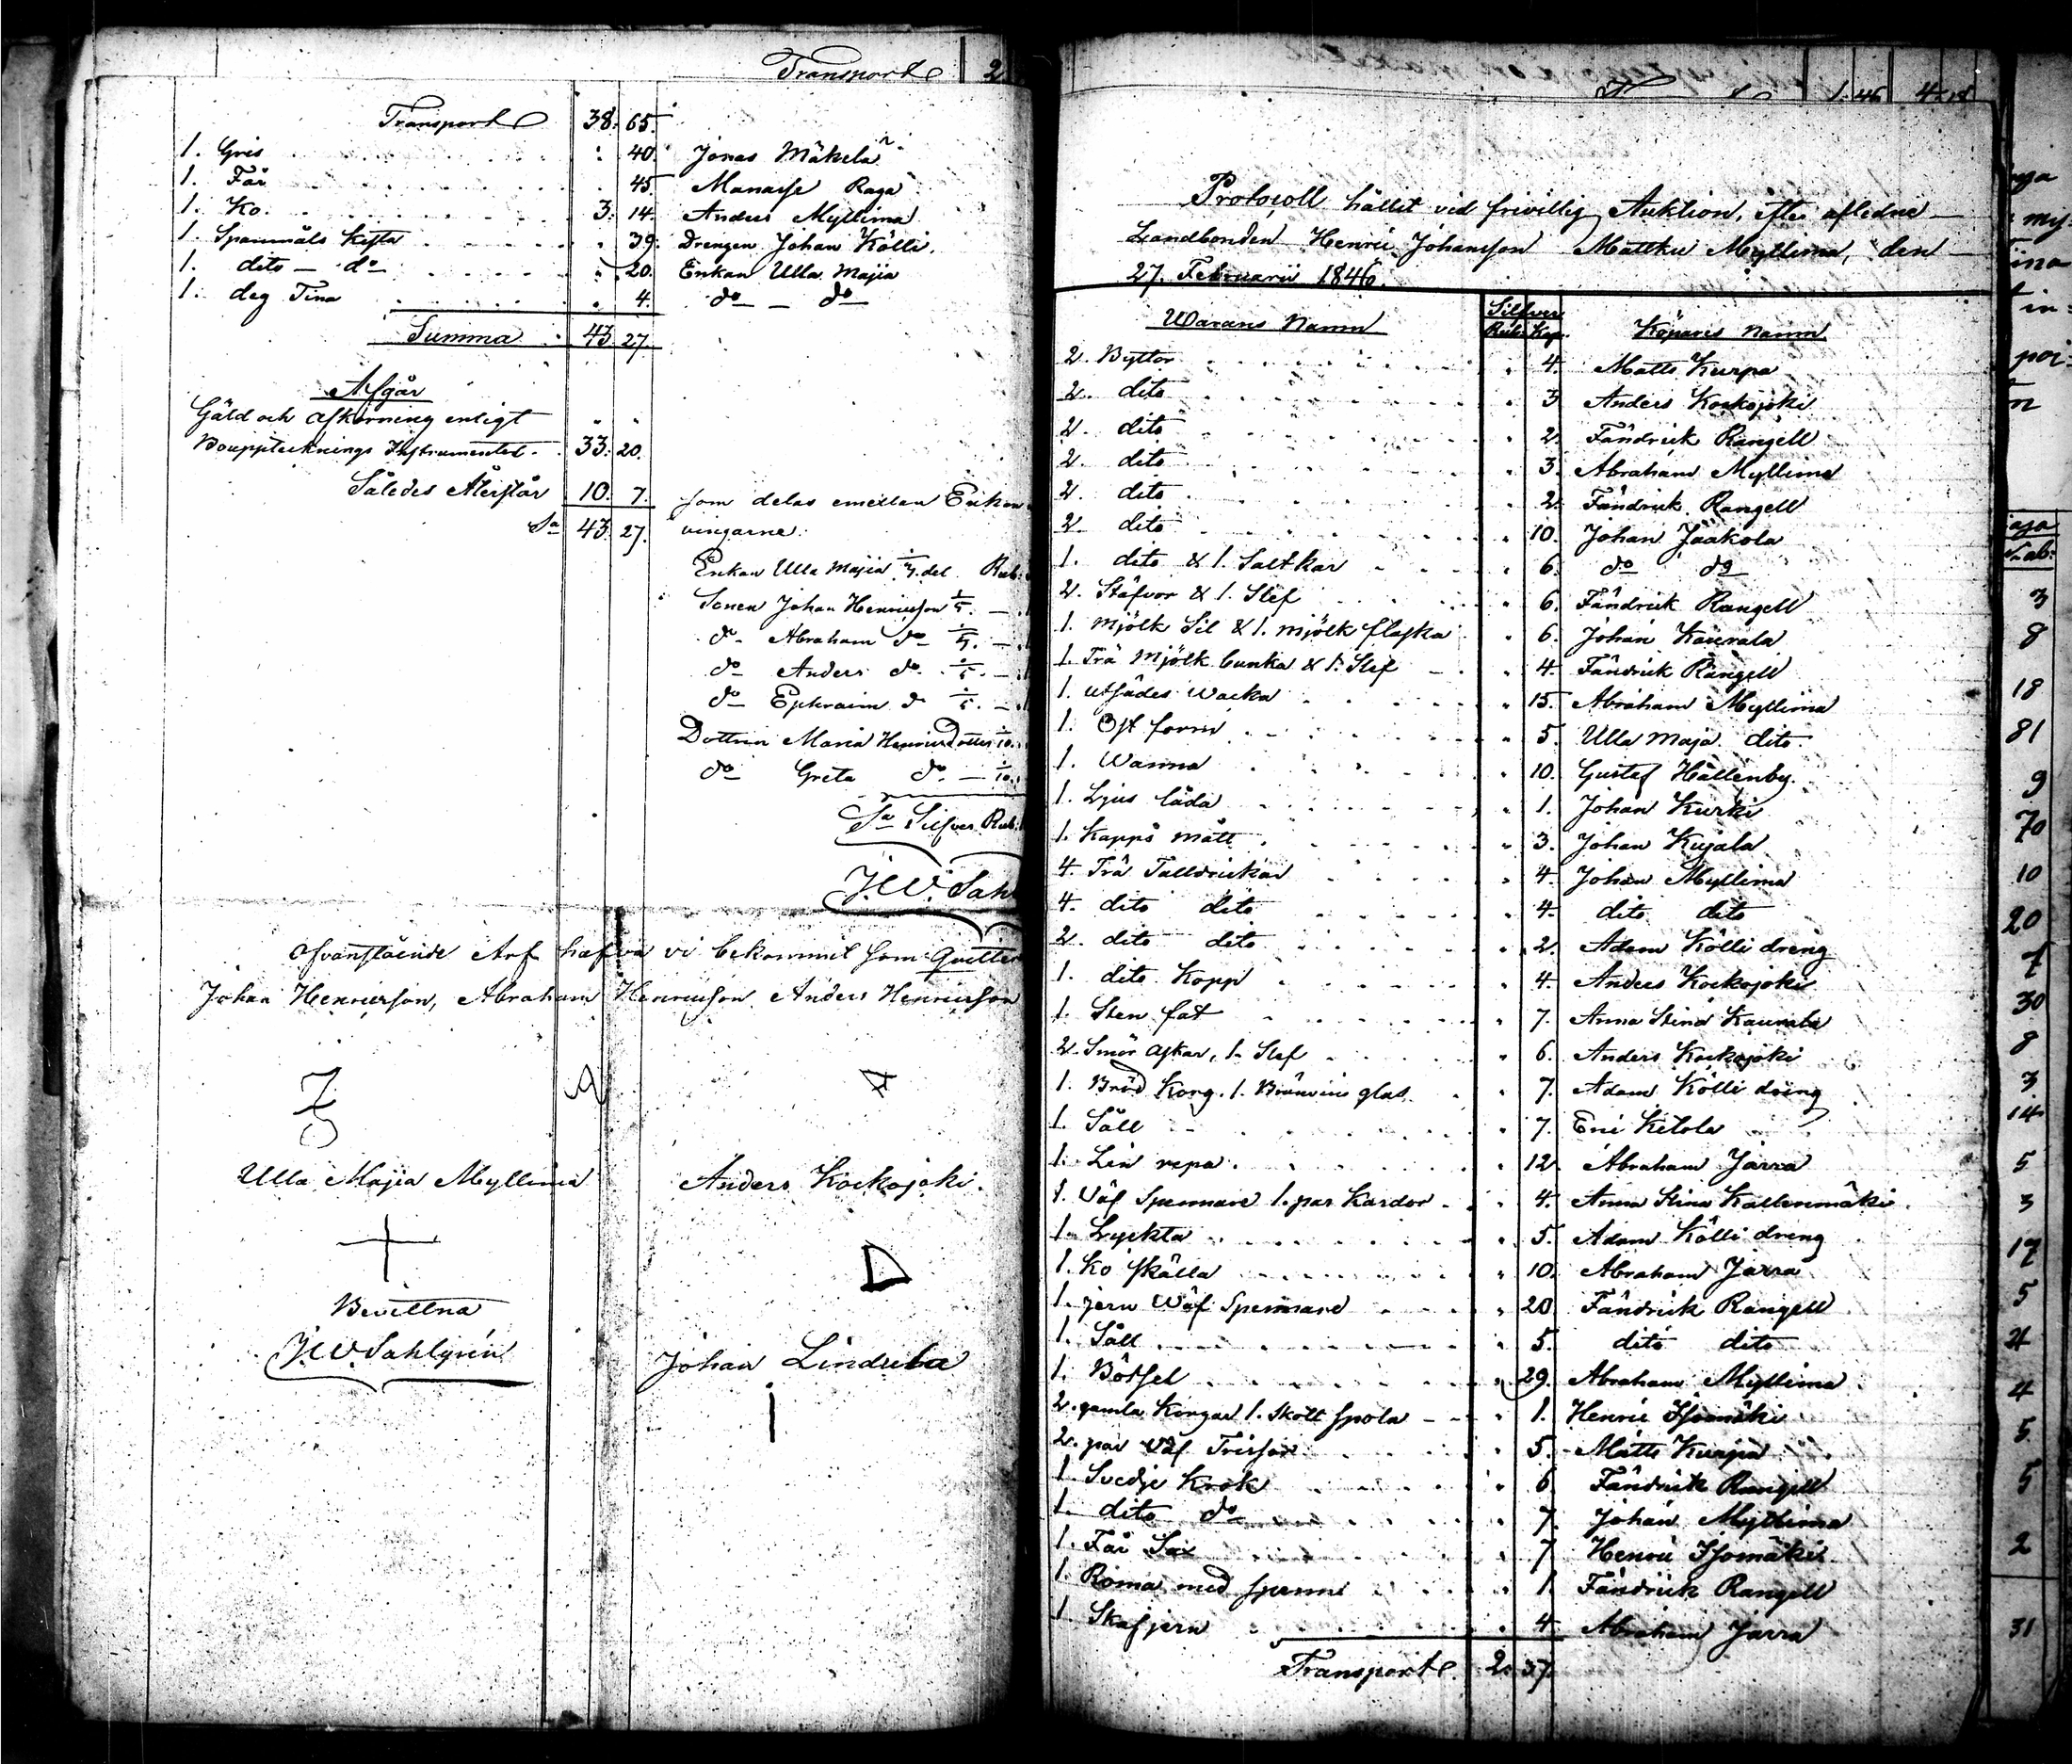 Transport 2
Transport 38. 65.
1. Gris . . . 40. Jonas Mäkelä
1. Får . . . 45 Manasse Raga
1. Ko . . . 3. 14. Anders Myllima
1. Spanmåls Kista . . . 39. Drengen Johan Kölli.
1. dito — do . . . 20. Enkan Ulla Majia
1. deg Tina . . . 4. do — do
Summa . 43. 27.
Afgår
Gäld och afkortning enligt
Bouppteknings Instrumentet. 33. 20.
Således Återstår 10. 7. som delas emellan
Sa 43. 27. vingarne.
Enkan Ulla Majia 1/7. del Rub:
Sonen Johan Henricsson 1/5. —
do Abraham do 1/5. —
do Anders do. 1/5. —
do Ephraim do 1/5. —
Dottren Maria Henricsdotter 1/10.
do Greta do — 1/10.
Sa Silfver Rub:
J.W. Sahl
Ofvanstående Arf hafva vi bekommit som Quitte
Johan Henricsson, Abraham Henricsson Anders Henricsson
Ulla Majia Myllima Anders Kockojoki.
Bevittna
J.W. Sahlgrén Johan Lindula
1. 46 4. 18
Protocoll hållit vid frivillig Auktion, efter aflidne
Landbonden Henric Johansson Mattku Myllima, den
27. Februarii 1846.
Warans Namn Silfver Rub: Kop. Köpares Namn
2. Byttor . . . 4. Matts Kurpa
2. dito . . . 3 Anders Kockojoki
2. dito . . . 2. Fändrick Rangell
2. dito . . . 3. Abraham Myllima
2. dito . . . 2. Fändrick Rangell
2. dito . . . 10. Johan Jaakola
1. dito & 1. Saltkar . . . 6. do do
2. Stäfvor & 1. Slef . . . 6. Fändrick Rangell
1. Mjölk Sil & 1. mjölk flaska . 6. Johan Kaurala
1. Trä Mjölk bunka & 1. Slef — . 4. Fändrick Rangell
1. utsädes Wacka . . . 15. Abraham Myllima
1. Ost form . . . 5. Ulla Maja dito.
1. Wanna . . . 10. Gustaf Hällenby.
1. Ljus låda . . . 1. Johan Kurki
1. Kapps mått . . . 3. Johan Kujala
4. Trä Talldrickar . . . 4. Johan Myllima
4. dito dito . . . 4. dito dito
2. dito dito . . . 2. Adam Kölli dreng
1. dito Kopp . . . 4. Anders Kockojoki
1. Sten fat . . . 7. Anna Stina Kaurala
2. Smör askar, 1. Slef . . . 6. Anders Kockojoki
1. Bröd Korg. 1. Bränvins glas . 7. Adam Kölli dreng
1. Såll . . . 7. Eric Ketola
1. Lin repa . . . 12. Abraham Jarra
1. Väf Spennare 1. par Kardor . . . 4. Anna Stina Kallenmäki.
1. Lyckta . . . 5. Adam Kölli dreng
1. Ko skälla . . . 10. Abraham Jarra
1. jern Wäf Spennare . . . 20. Fändrick Rangell
1. Såll . . . 5. dito dito
1. Bötsel . . . 29. Abraham Myllima
2. gamla Korgar 1. Skott spola — . 1. Henric Isomäki
2. par Väf Trissor . . . 5. Matts Kurpa
1. Svedje Krok . . . 6 Fändrick Rangell
1. dito do . . . 7. Johan Myllima
1. Får Sax . . . 7 Henric Isomäki
1. Roma med spenne . . . 1. Fändrick Rangell
1 Skafjern . . . 4. Abraham Jarra
Transport 2. 37.
3
8
18
81
9
70
10
20
7
30
8
3
14
5
3
17
5
4
5
5
2
31